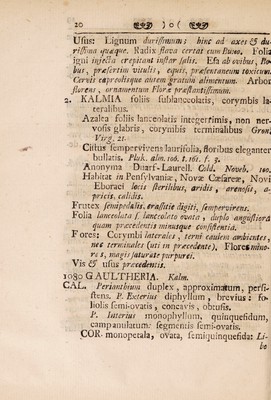 20 )o(
Usus: Lignum durissimum; hinc ad axes & du-
rissima quæque. Radix flava cerist cum stanno. Folia
igni injecta crepitant instar salis. Esa ab ovibus, Bo-
bus, præsertim vitulis, equis, præsentaneum toxicum.
Cervis capreolisque autem gratum alimentum. Arbor
florens, ornamentum Floræ præstantissimum.
2. KALMIA foliis sublanceolatis, corymbis la-
teralibus.
Azalea foliis lanceolatis integerrimis, non ner-
vosis glabris, corymbis terminalibus Gron.
Virg. 21.
Cistus sempervivens laurifolia, floribus eleganter
bullatis. Pluk. alm. 106. t. 161. f. 3.
Anonyma Duarf-Laurell. Cold. Noveb. 100.
Habitat in Pensylvaniæ, Novæ Cæsareæ, Novi
Eboraci locis sterilibus, aridis, arenosis, a-
pricis, calidis.
Frutex semipedalis, crassitie digiti, sempervirens.
Folia lanceolata s. lanceolato ovata, duplo angustiora
quam præcedentis minusque consistentia.
Flores: Corymbi laterales, terni caulem ambientes,
nec terminales (uti in præcedente), Flores mino-
res, magis saturate purpurei.
Vis & usus præcedentis.
1080 GAULTHERIA. Kalm.
CAL. Perianthium duplex, approximatum, persi-
stens. P. Exterius diphyllum, brevius: fo-
liolis semi-ovatis, concavis, obtusis.
P. Interius monophyllum, quinquefidum,
campanulatum: segmentis semi-ovatis.
COR. monopetala, ovata, semiquinquefida: Li-
be